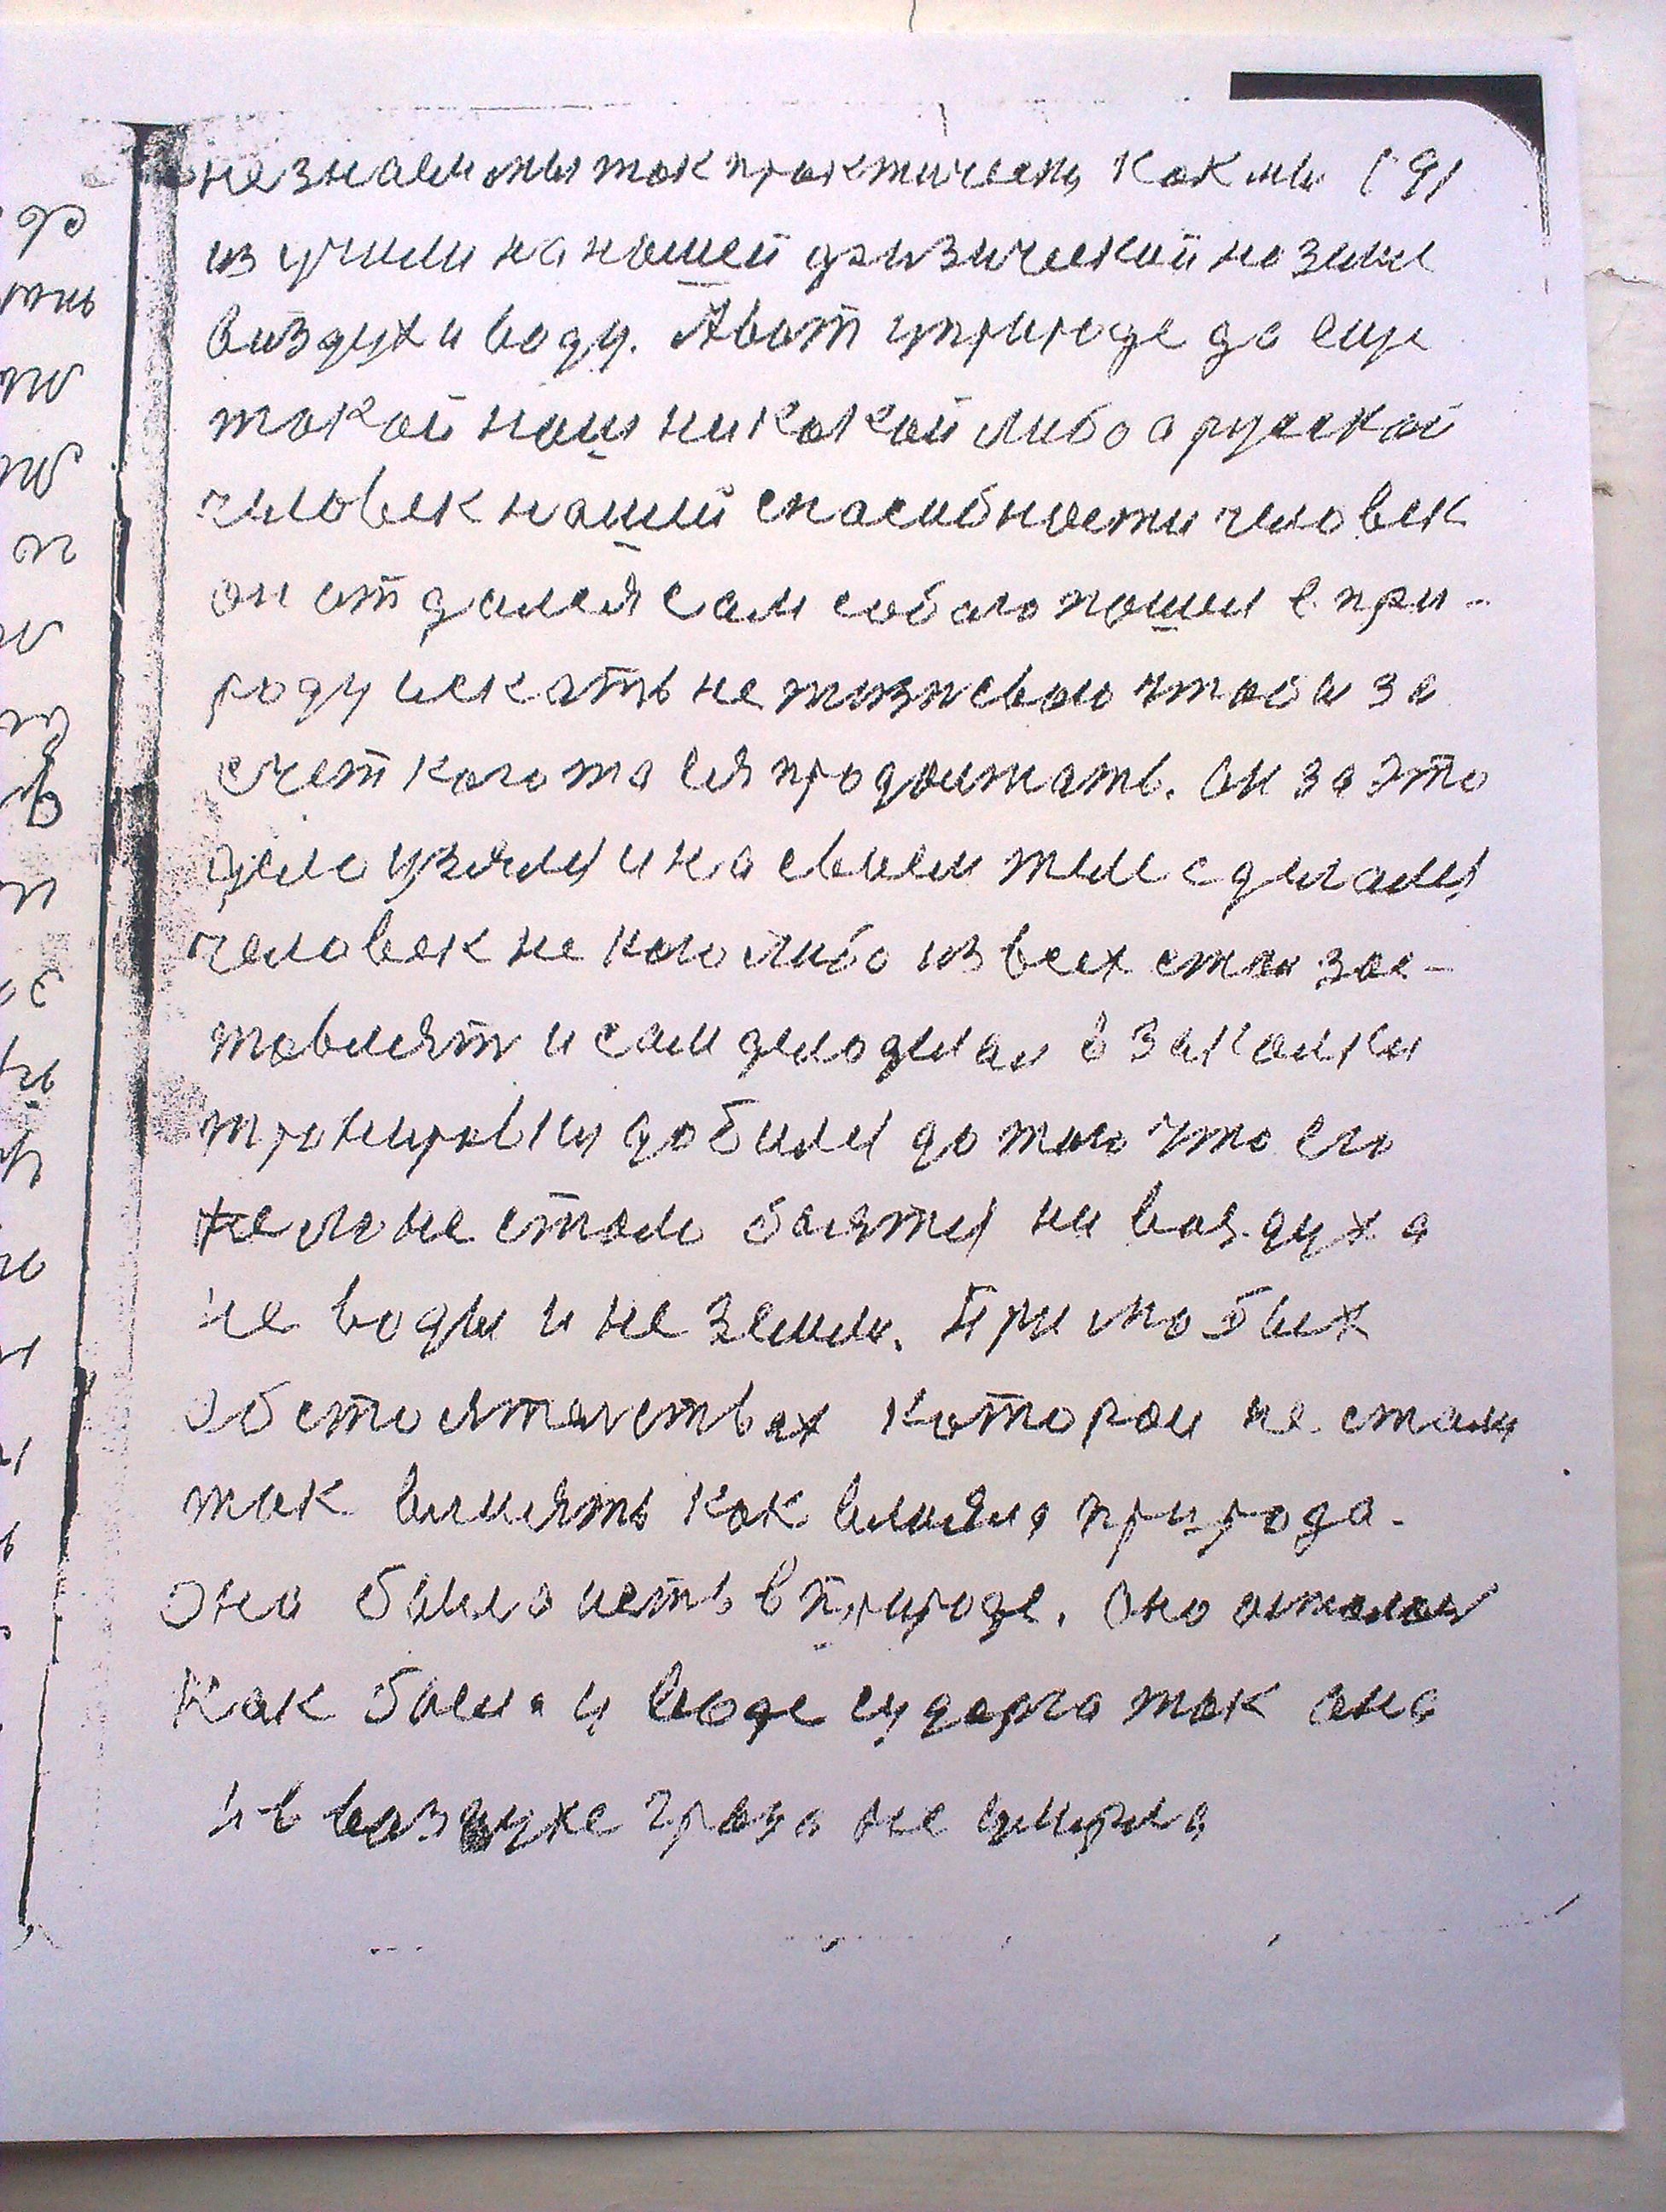 не знаем мы так практически как мы (9)
изучили на нашей физической на земле
воздух и воду. А вот у природе да еще
такой наш никакой либо а руской
человек нашей спасибности человек
он отдался сам собаю пошел в при-
роду искать не жизни свою чтоби за
счет кого то ся продолжать. Он за это
дело узялся и на своем теле сделался
человек не кого либо из всех стал зас-
товлять и сам дело делал в закалки
тренировки добился до того что его
тело не стало баятся ни воздуха
не воды и не земли. При любых
обстоятелствах которои не стали
так влиять как влияла природа.
Оно было исть в природе. Оно осталось
как было у воде судорга так она
и в воздухе гроза не умирла